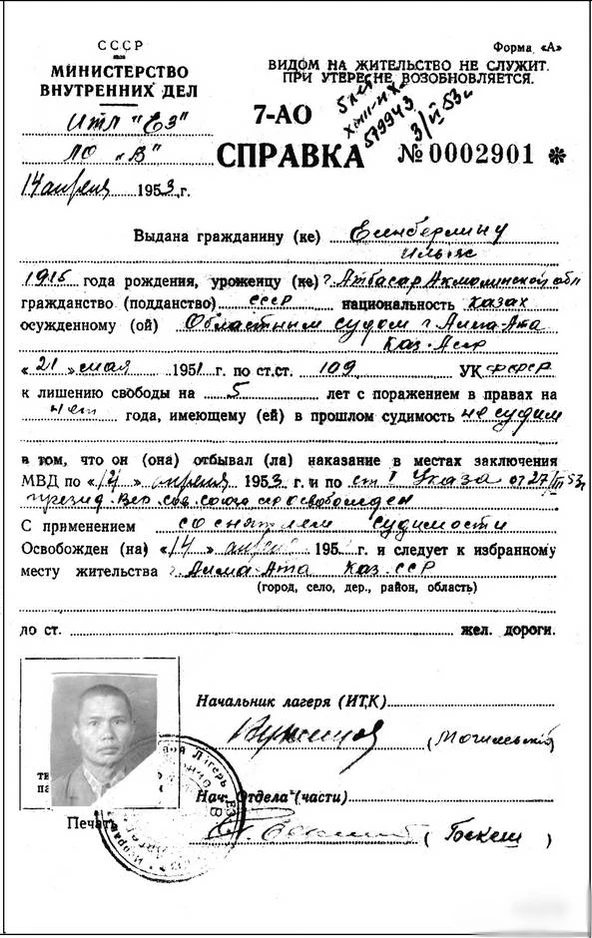 СССР
МИНИСТЕРСТВО
ВНУТРЕННИХ ДЕЛ
ИТЛ "ЕЗ"
ЛО "В"
14 апреля 1953 г.
Форма «А»
ВИДОМ НА ЖИТЕЛЬСТВО НЕ СЛУЖИТ.
ПРИ УТЕРЕ НЕ ВОЗОБНОВЛЯЕТСЯ.
579943
3/VI 53
7-АО
СПРАВКА № 0002901 *
Выдана гражданину (ке) Есенберлину
Ильяс
1915 года рождения, уроженцу (ке) г. Атбасар Акмолинской обл
гражданство (подданство) СССР национальность казах
осужденному (ой) Областным судом г. Алма-Ата
Каз. ССР
«21» мая 1951 г. по ст.ст. 109 УК РСФСР
к лишению свободы на 5 лет с поражением в правах на
нет года, имеющему (ей) в прошлом судимость не судим
в том, что он (она) отбывал (ла) наказание в местах заключения
МВД по «14» апреля 1953 г. и по ст 1 Указа от 27/III 53 г
През. Вер. Сов. Союза ССР освобожден
С применением со снятием судимости
Освобожден (на) «14» апреля 195 г. и следует к избранному
месту жительства г. Алма-Ата Каз. ССР
(город, село, дер., район, область)
до ст. жел. дороги.
Начальник лагеря (ИТК)
(Могилевский)
Нач. Отдела (части)
Печать